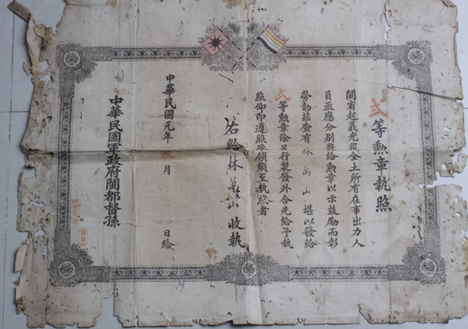 弍等勳章執照
閩省起義光復全土所有在事出力人
員亟應分別獎給勳章以示鼓勵而彰
勞勩茲查有林萬山堪以發給
弍等勳章除另行製發外合先給予執
照仰即遵照祗領須至執照者
右給林萬山收執
中華民國元年 月 日給
中華民國軍政府閩都督孫